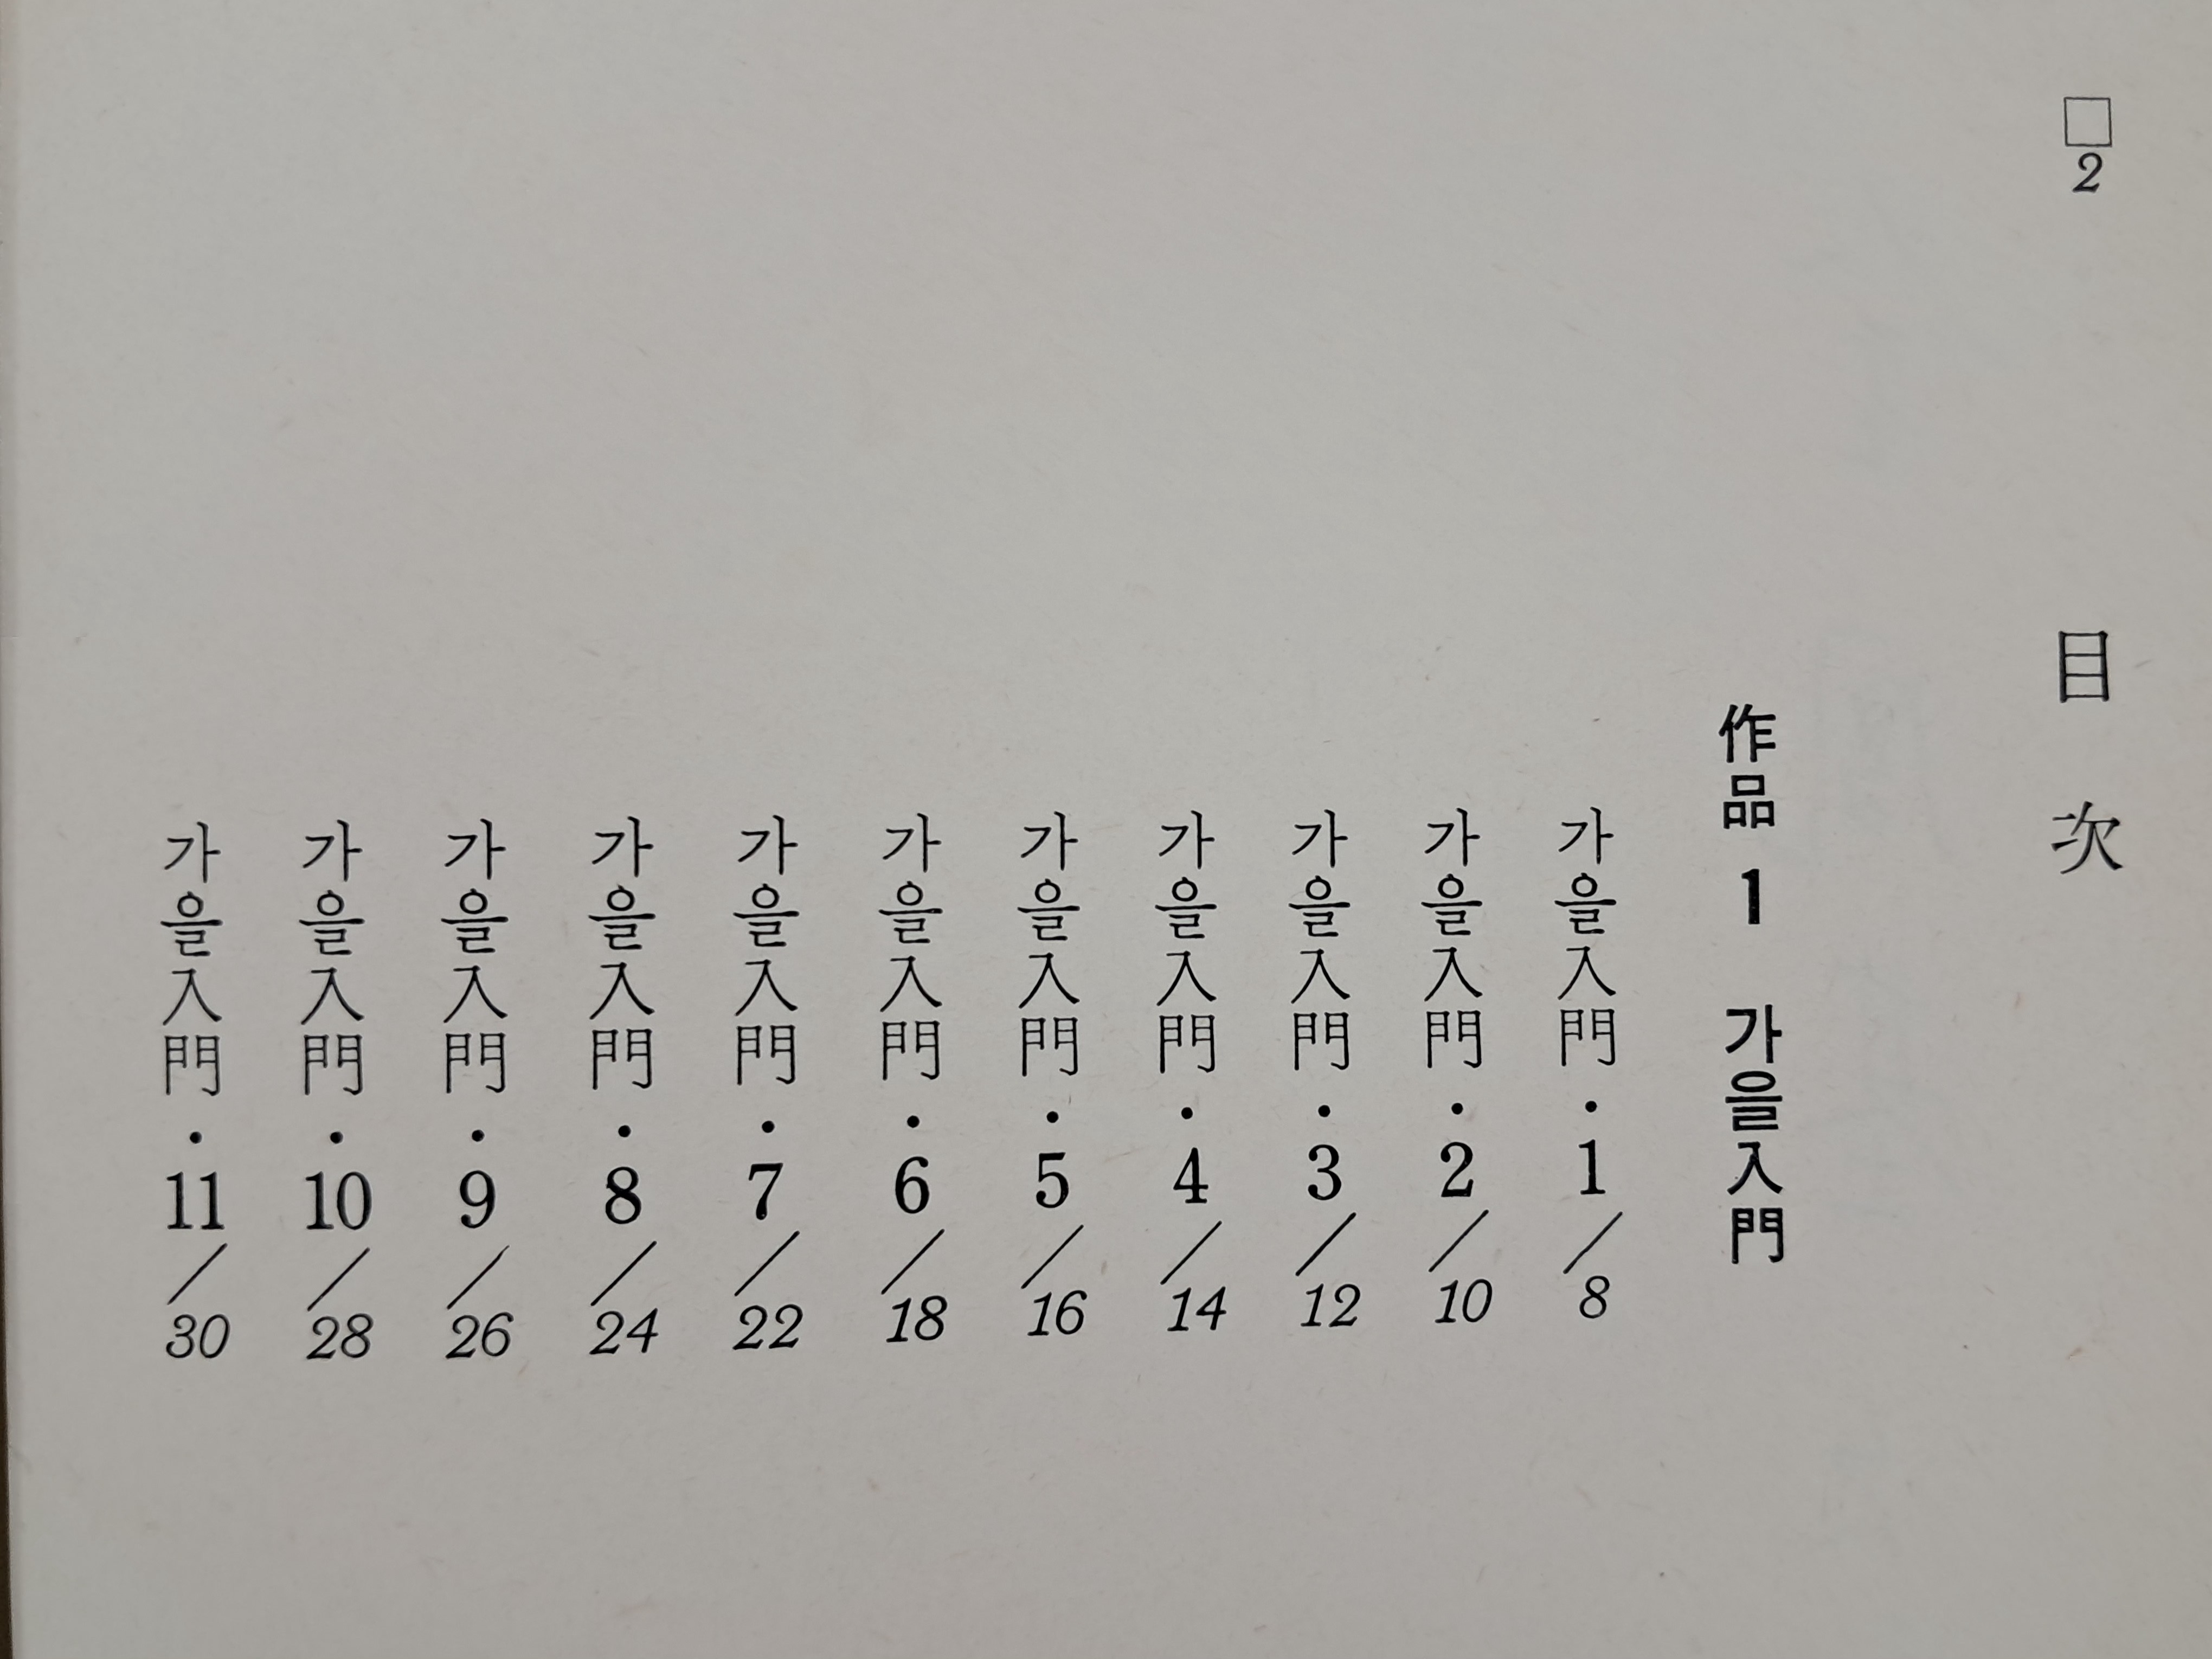 □2
目次
作品 1 가을入門
가을入門・1／8
가을入門・2／10
가을入門・3／12
가을入門・4／14
가을入門・5／16
가을入門・6／18
가을入門・7／22
가을入門・8／24
가을入門・9／26
가을入門・10／28
가을入門・11／30